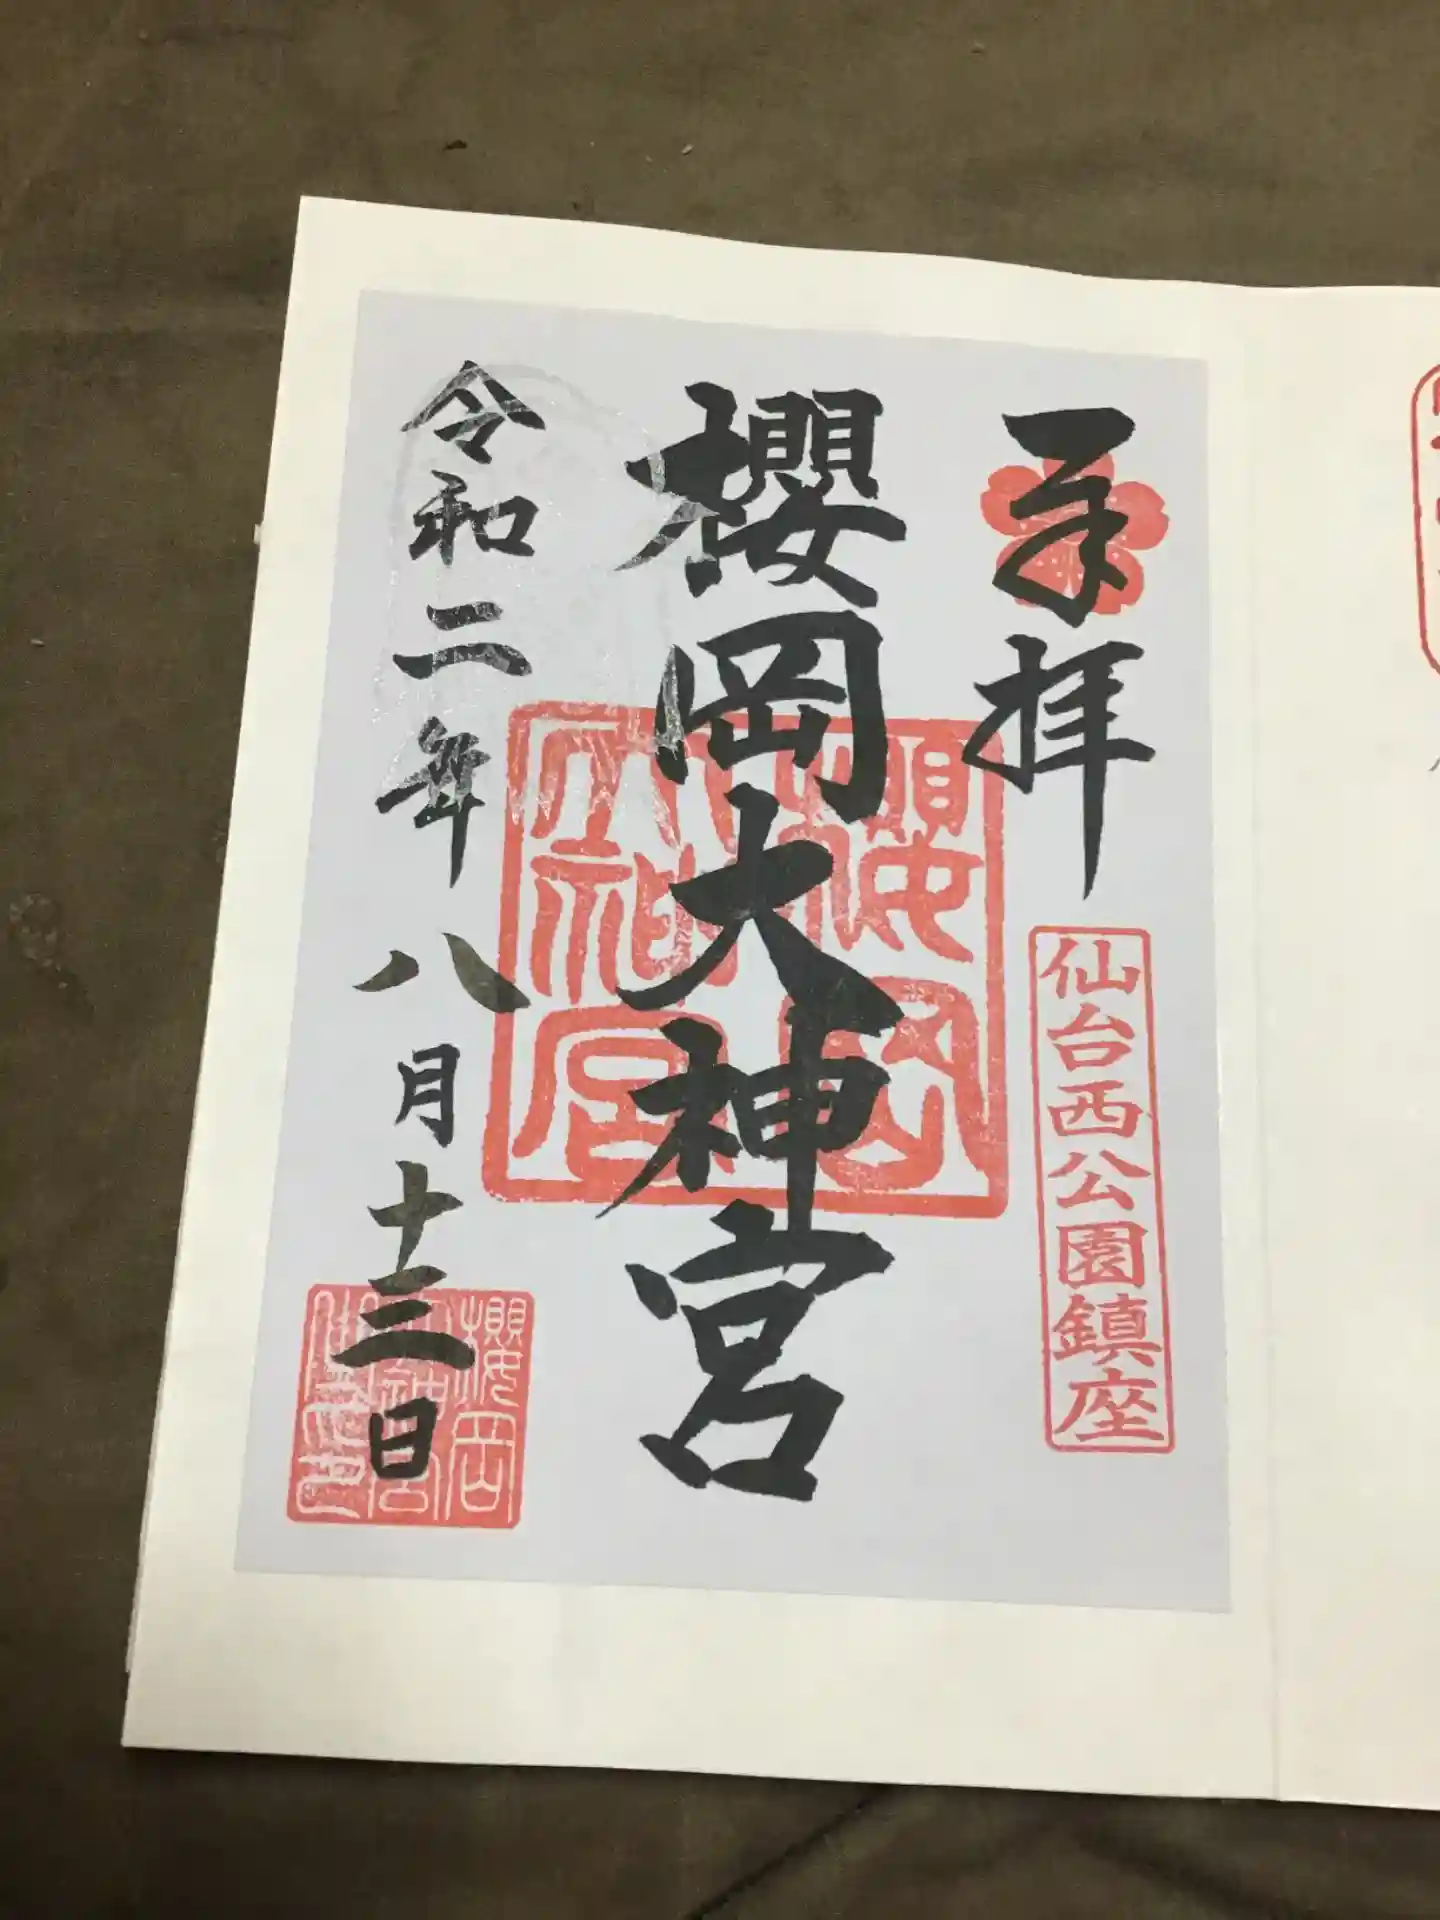 奉拝
仙台西公園鎮座
櫻岡大神宮
櫻岡
大神宮
令和二年八月十三日